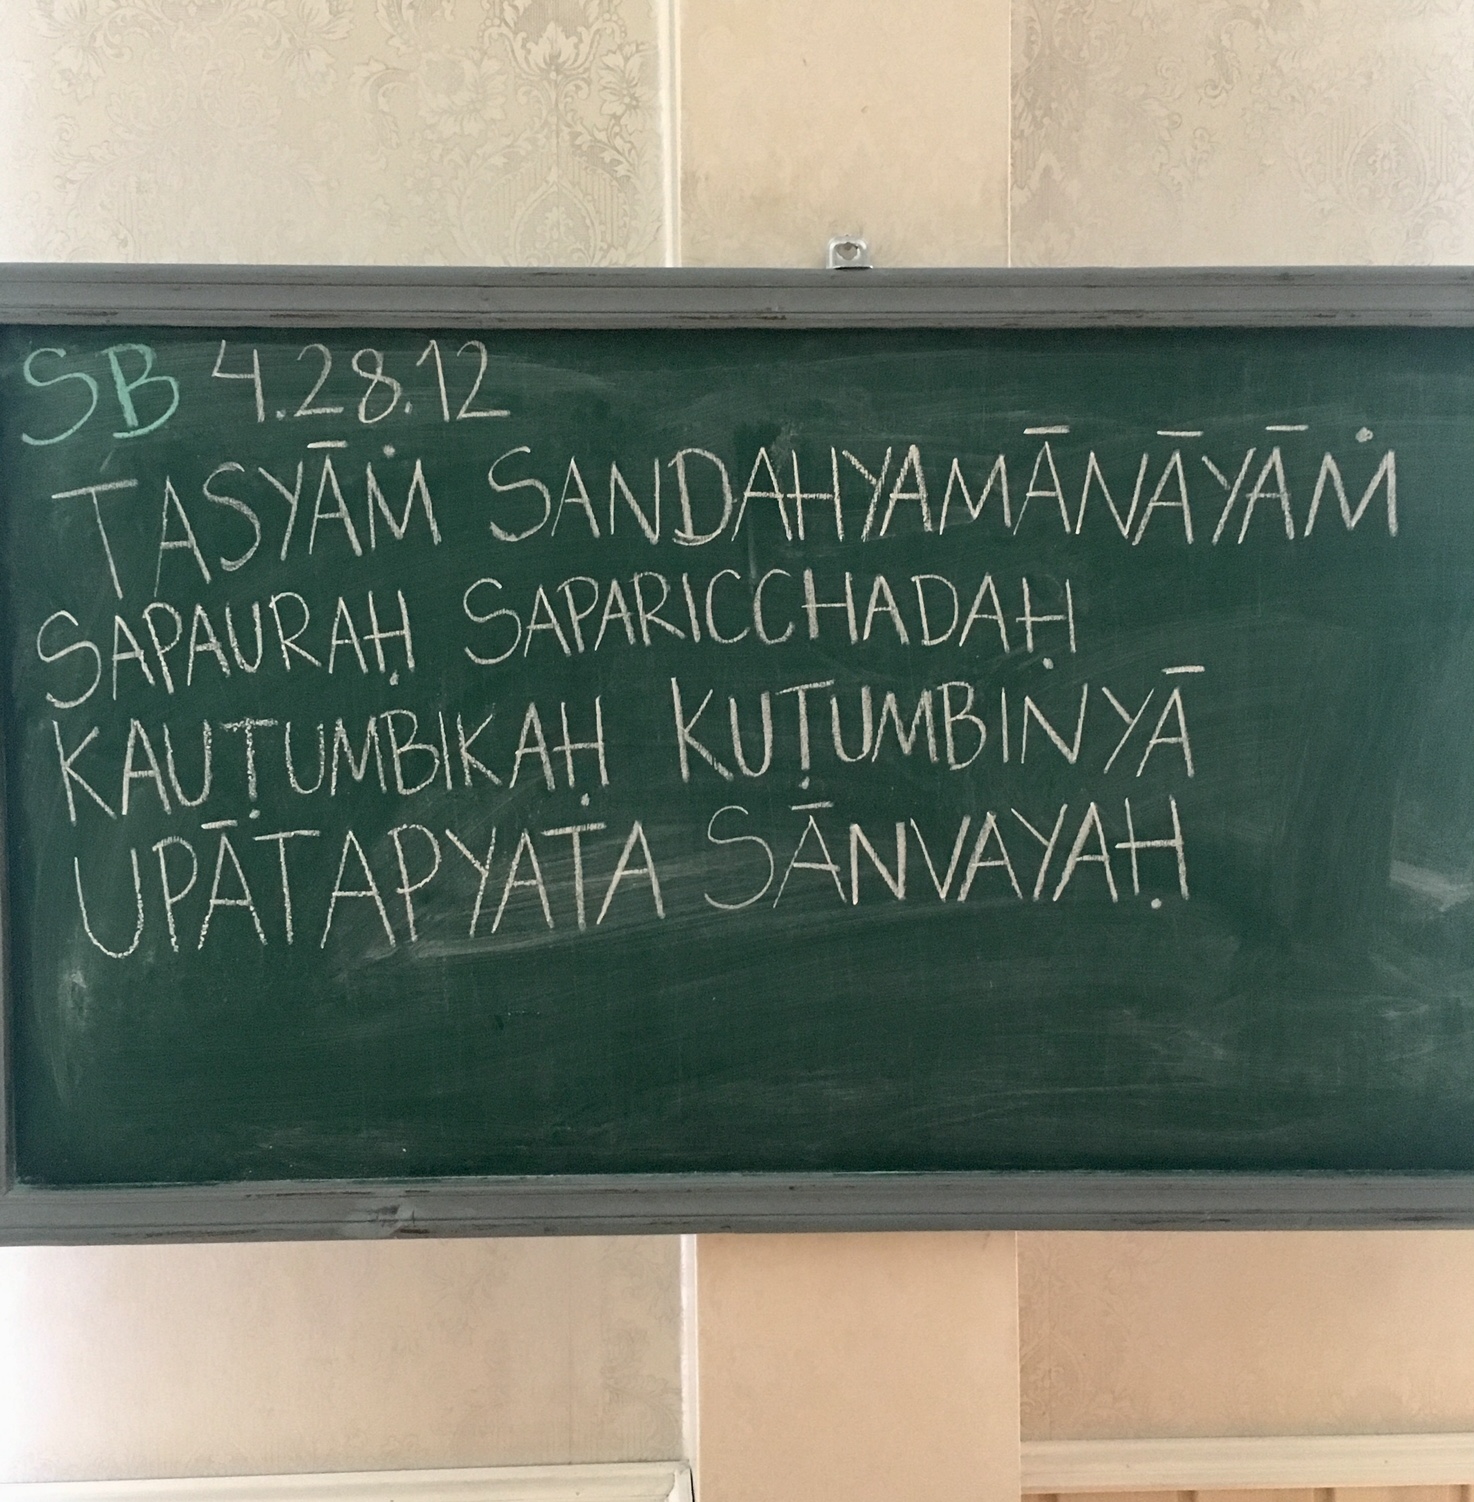 SB 4.28.12
TASYĀṀ SANDAHYAMĀNĀYĀṀ
SAPAURAḤ SAPARICCHADAḤ
KAUṬUMBIKAḤ KUṬUMBINYĀ
UPĀTAPYATA SĀNVAYAḤ